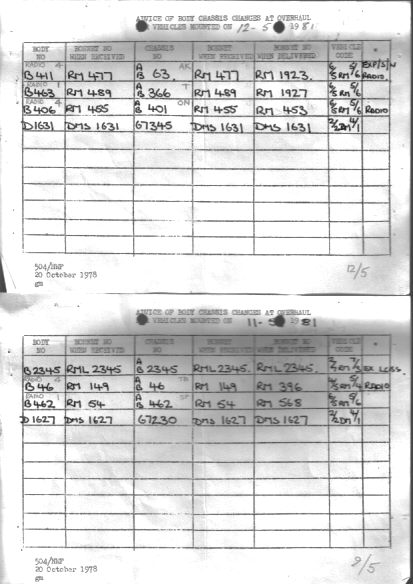 ADVICE OF BODY CHASSIS CHANGES AT OVERHAUL
VEHICLES MOUNTED ON 12-5 1981
BODY NO BONNET NO WHEN RECEIVED CHASSIS NO BONNET WHEN RECEIVED BONNET NO WHEN DELIVERED VEHICLE CODE
RADIO 4 AK EXP/S/N
B441 RM 477 A B 63. RM 477 RM 1923. 6/5 RM 5/6 RADIO.
RADIO 1 T
B463 RM 489 A B 366 RM 489 RM 1927 6/5 RM 5/6
RADIO 4 ON
B406 RM 455 A B 401 RM 455 RM 453 6/5 RM 5/6 RADIO
D1631 DMS 1631 67345 DMS 1631 DMS 1631 2/2 DM 4/1
504/HMP
20 October 1978
gm
12/5
ADVICE OF BODY CHASSIS CHANGES AT OVERHAUL
VEHICLES MOUNTED ON 11-5 1981
BODY NO BONNET NO WHEN RECEIVED CHASSIS NO BONNET WHEN RECEIVED BONNET NO WHEN DELIVERED VEHICLE CODE
B2345 RML 2345 A B 2345 RML 2345. RML 2345. RM 7/3 EX LCBS.
RADIO 4
B46 RM 149 A B 46 RM 149 RM 396 RM 5/4 RADIO
RADIO 1
B462 RM 54 A B 462 RM 54 RM 568 6/5 RM 5/6
D1627 DMS 1627 67230 DMS 1627 DMS 1627 2/2 DM 4/1
504/HMP
20 October 1978
gm
9/5